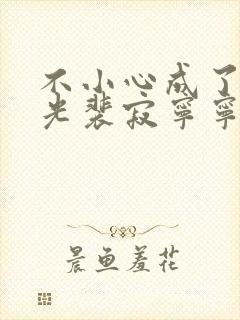 不小心成了
光裴寂宁宁
晨鱼羞花